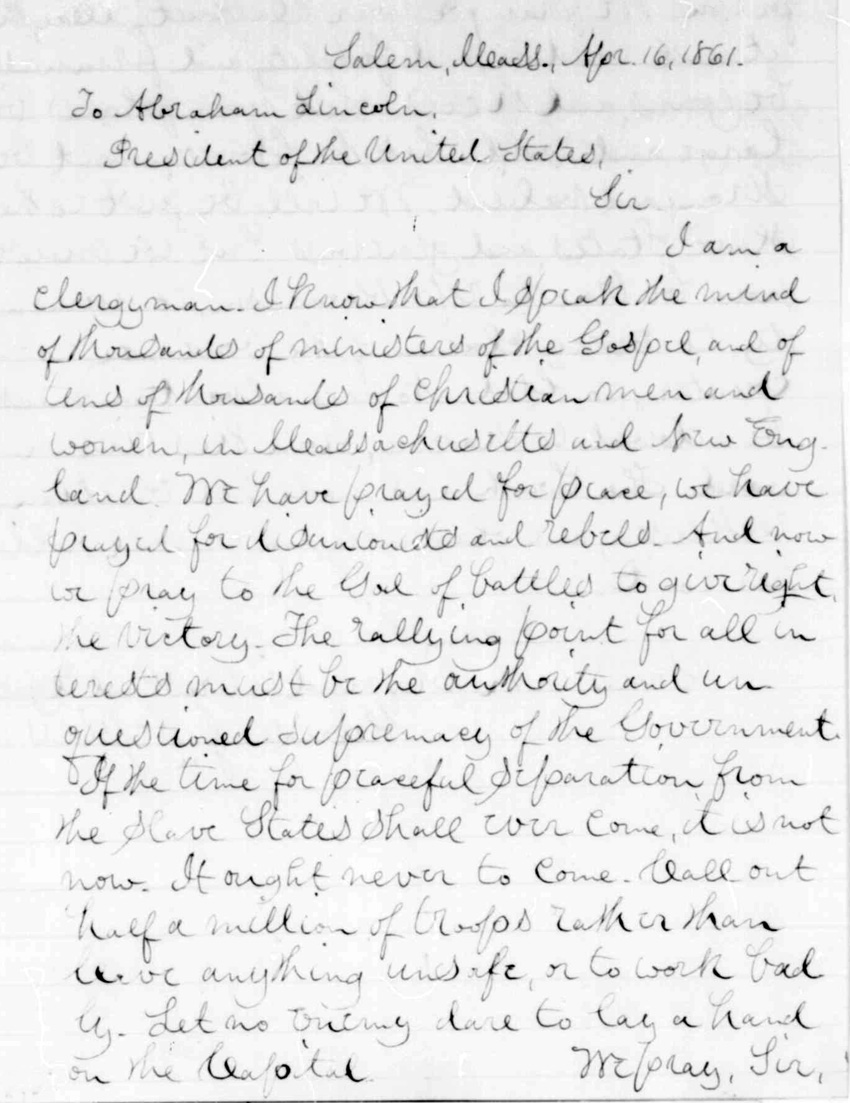 Salem, Mass., Apr. 16, 1861.
To Abraham Lincoln,
President of the United States,
Sir
I am a
clergyman. I know that I speak the mind
of thousands of ministers of the Gospel, and of
tens of thousands of Christian men and
women, in Massachusetts and New Eng-
land. We have prayed for peace, we have
prayed for disunionists and rebels. And now
we pray to the God of battles to give right
the victory. The rallying point for all in
terests must be the authority and un
questioned supremacy of the Government.
If the time for peaceful separation from
the slave States shall ever come, it is not
now. It ought never to come. Call out
half a million of troops rather than
leave anything unsafe, or to work bad
ly. Let no enemy dare to lay a hand
on the Capital. We pray, Sir,